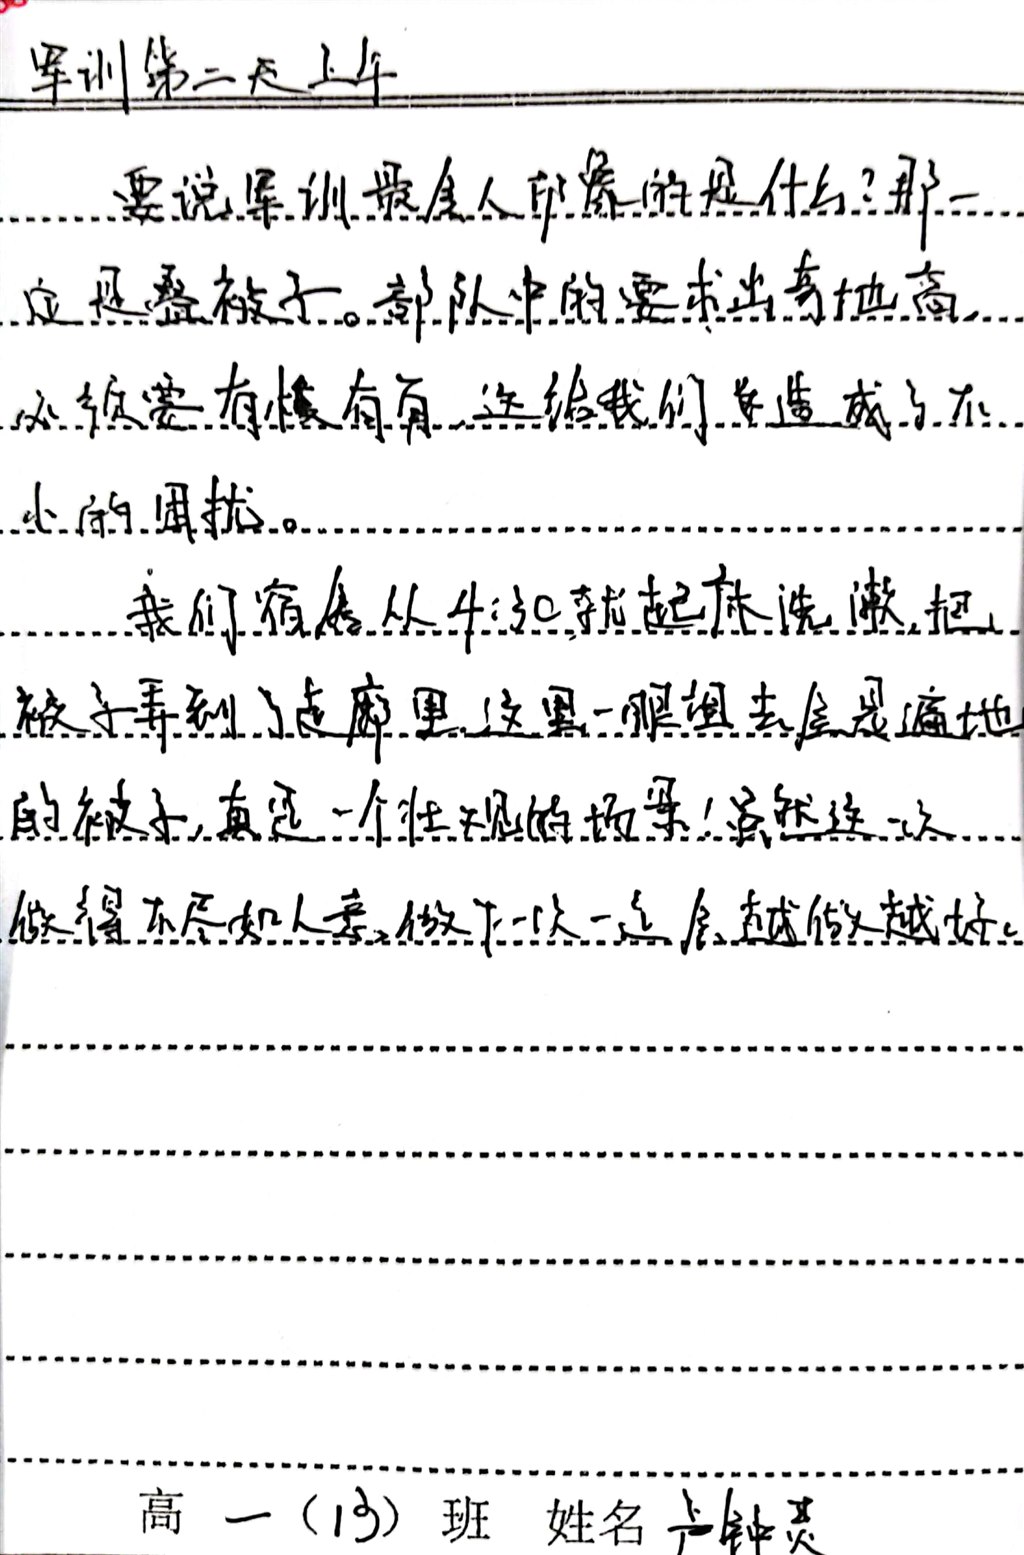 军训第二天上午
要说军训最令人印象的是什么?那一
定是叠被子。部队中的要求出奇地高,
必须要有棱有角,这给我们造成了不
小的困扰。
我们宿舍从4:30就起床洗漱,把
被子弄到了走廊里,这里一眼望去全是遍地
的被子,真是一个壮观的场景!虽然这一次
做得不尽如人意,做下一次一定会越做越好。
高一(13)班 姓名 卢钟灵